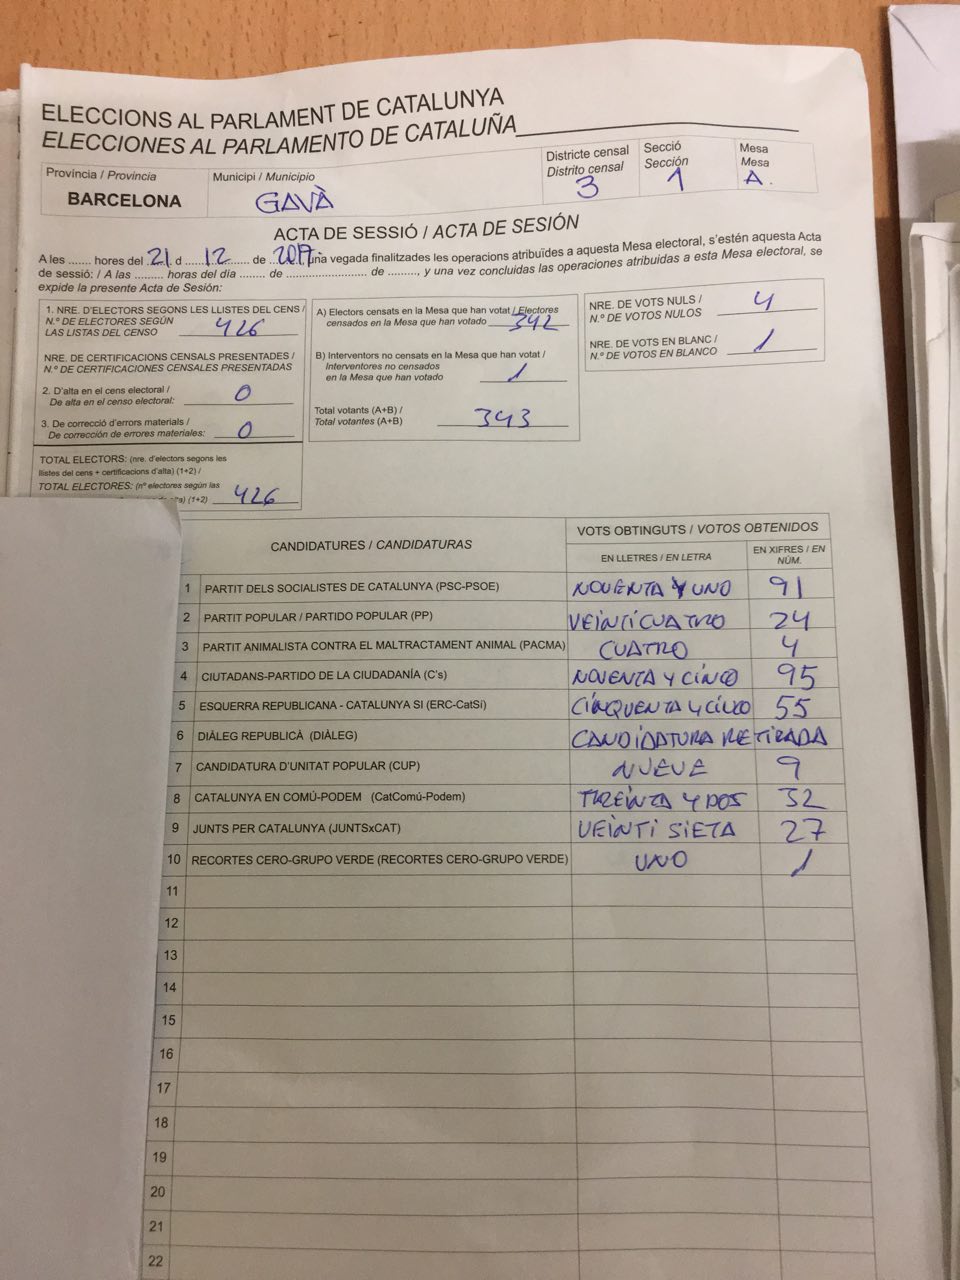 ELECCIONS AL PARLAMENT DE CATALUNYA
ELECCIONES AL PARLAMENTO DE CATALUÑA
Província / Provincia
BARCELONA
Municipi / Municipio
GAVÀ
Districte censal
Distrito censal
3
Secció
Sección
1
Mesa
Mesa
A.
ACTA DE SESSIÓ / ACTA DE SESIÓN
A les ........ hores del 21 d 12 de 2017 una vegada finalitzades les operacions atribuïdes a aquesta Mesa electoral, s'estén aquesta Acta
de sessió: / A las ......... horas del día ........ de ........................ de ........., y una vez concluidas las operaciones atribuidas a esta Mesa electoral, se
expide la presente Acta de Sesión:
1. NRE. D'ELECTORS SEGONS LES LLISTES DEL CENS /
N.º DE ELECTORES SEGÚN
LAS LISTAS DEL CENSO 426
NRE. DE CERTIFICACIONS CENSALS PRESENTADES /
N.º DE CERTIFICACIONES CENSALES PRESENTADAS
2. D'alta en el cens electoral /
De alta en el censo electoral: 0
3. De correcció d'errors materials /
De corrección de errores materiales: 0
TOTAL ELECTORS: (nre. d'electors segons les
llistes del cens + certificacions d'alta) (1+2) /
TOTAL ELECTORES: (nº electores según las
(1+2) 426
A) Electors censats en la Mesa que han votat / Electores
censados en la Mesa que han votado 342
B) Interventors no censats en la Mesa que han votat /
Interventores no censados
en la Mesa que han votado 1
Total votants (A+B) /
Total votantes (A+B) 343
NRE. DE VOTS NULS /
N.º DE VOTOS NULOS 4
NRE. DE VOTS EN BLANC /
N.º DE VOTOS EN BLANCO 1
CANDIDATURES / CANDIDATURAS
VOTS OBTINGUTS / VOTOS OBTENIDOS
EN LLETRES / EN LETRA
EN XIFRES / EN
NÚM.
1 PARTIT DELS SOCIALISTES DE CATALUNYA (PSC-PSOE) NOVENTA Y UNO 91
2 PARTIT POPULAR / PARTIDO POPULAR (PP) VEINTICUATRO 24
3 PARTIT ANIMALISTA CONTRA EL MALTRACTAMENT ANIMAL (PACMA) CUATRO 4
4 CIUTADANS-PARTIDO DE LA CIUDADANÍA (C's) NOVENTA Y CINCO 95
5 ESQUERRA REPUBLICANA - CATALUNYA SI (ERC-CatSí) CINQUENTA Y CINCO 55
6 DIÀLEG REPUBLICÀ (DIÀLEG) CANDIDATURA RETIRADA
7 CANDIDATURA D'UNITAT POPULAR (CUP) NUEVE 9
8 CATALUNYA EN COMÚ-PODEM (CatComú-Podem) TREINTA Y DOS 32
9 JUNTS PER CATALUNYA (JUNTSxCAT) VEINTI SIETA 27
10 RECORTES CERO-GRUPO VERDE (RECORTES CERO-GRUPO VERDE) UNO 1
11
12
13
14
15
16
17
18
19
20
21
22